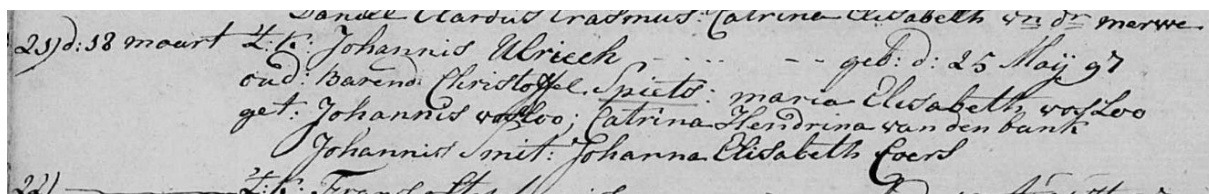 Daniel Elardus Erasmus: Catrina Elisabeth vn dr merwe
21) d: 18 maart 't: k: Johannis Ulrieck - - - - - - geb: d: 25 Maij 97
oud: Barend Christoffel Spiets: maria Elisabeth vosLoo
get: Johannis vosLoo; Catrina Hendrina van den bank
Johannis Smit: Johanna Elisabeth Coers
22) 't: k: